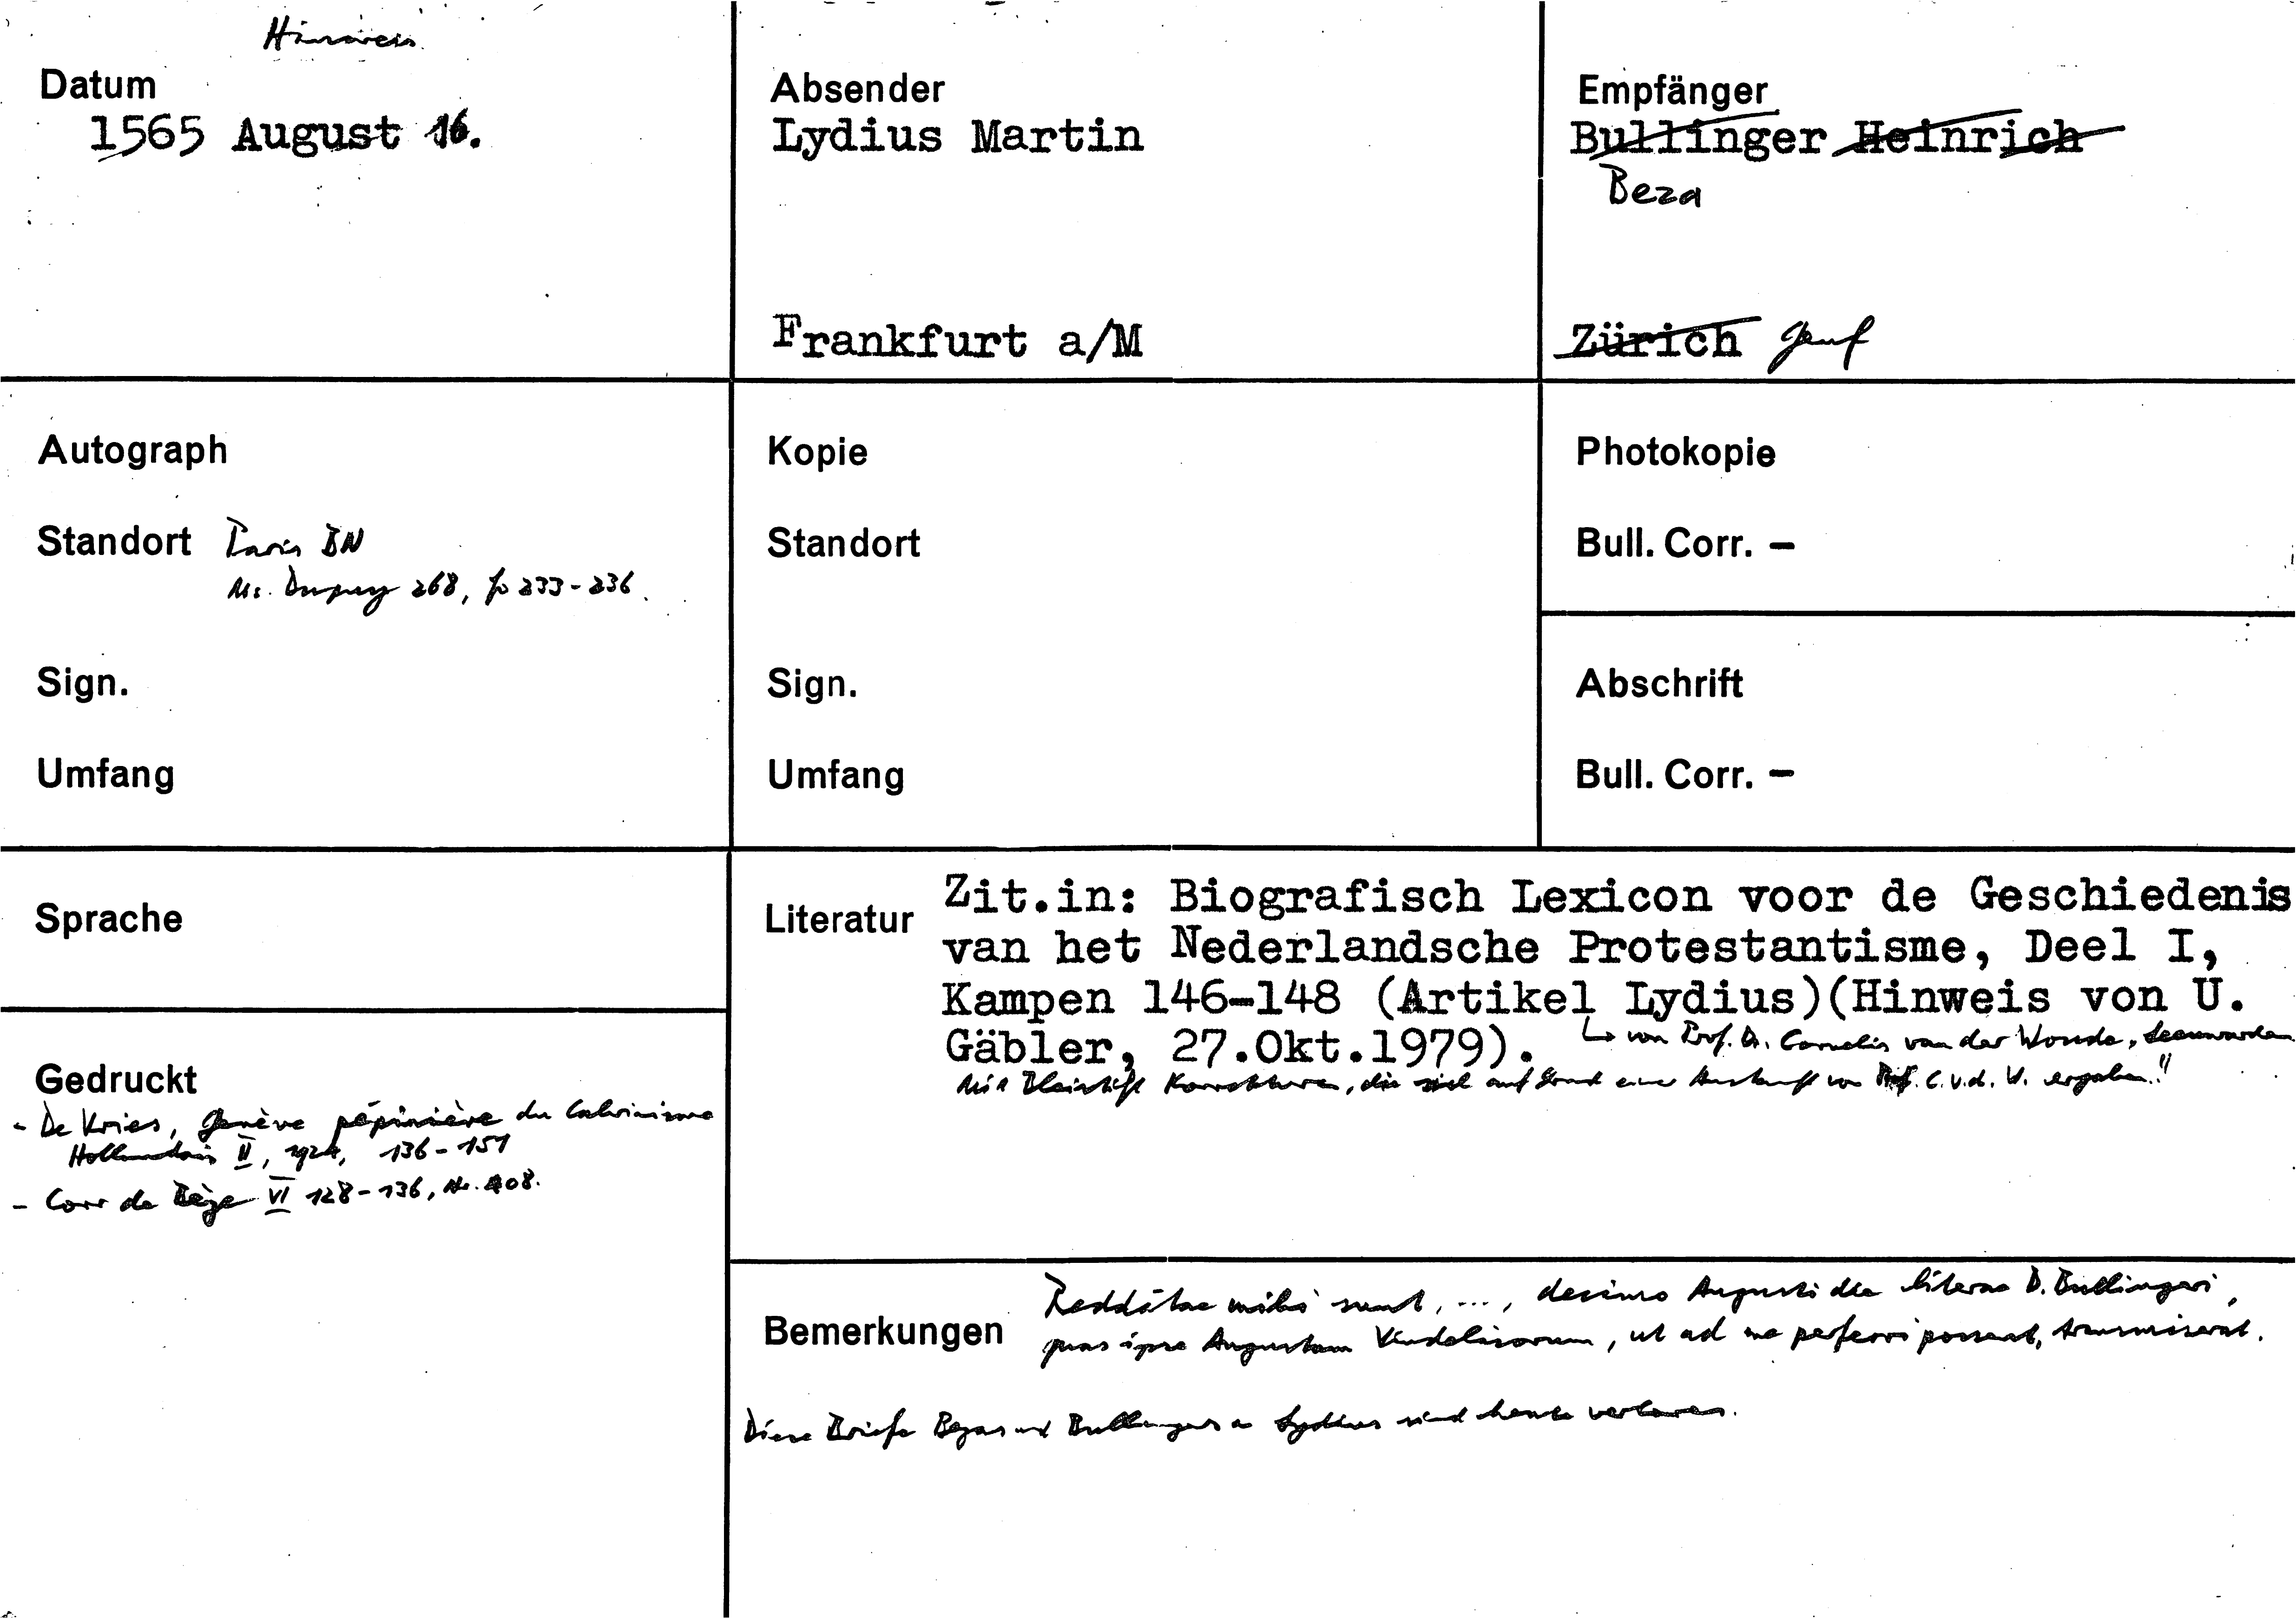 Hinweis
Datum
1565 August 16.
Absender
Lydius Martin
Frankfurt a/M
Empfänger
Bullinger Heinrich
Beza
Zürich Genf
Autograph
Standort Paris BN
Ms. Dupuy 268, fo 233-236.
Sign.
Umfang
Kopie
Standort
Sign.
Umfang
Photokopie
Bull. Corr. –
Abschrift
Bull. Corr. –
Sprache
Gedruckt
- De Vries, Genève pépinière du Calvinisme
Hollandais II, 1924, 136-151
- Corr de Bèze VI 128-136, Nr. 408.
Literatur
Zit.in: Biografisch Lexicon voor de Geschiedenis
van het Nederlandsche Protestantisme, Deel I,
Kampen 146-148 (Artikel Lydius)(Hinweis von U.
Gäbler, 27.Okt.1979). ↳ von Prof. Dr. Cornelis van der Woude, Leeuwarden
Mit Bleistift Korrekturen, die sich auf Grund einer Auskunft von Prof. C.v.d.W. ergaben!!
Bemerkungen
Redditae mihi sunt, ..., decimo Augusti die literae D. Bullingeri,
quas ipse Augustam Vindelicorum, ut ad me perferri possent, transmiserat.
Diese Briefe Bezas und Bullingers an Lydius sind heute verloren.